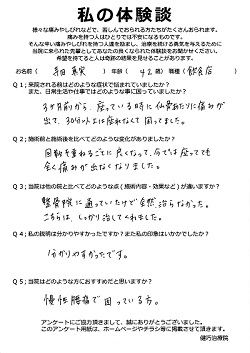 私の体験談
様々な痛みやしびれなどで、苦しんでおられる方たちがたくさんおられます。
痛みを持つ人はひとりでは不安になるものです。
そんな辛い痛みやしびれを持つ人達を励まし、治療を続ける勇気を与えるために
当院に来られた先輩としてあなたの良くなられた体験談をお聞かせください。
希望を持てると人は奇跡の結果を見せることがあります。
お名前( ) 年齢( 42 歳) 職種(飲食店)
Q1:来院される前はどのような症状で悩まれていましたか?
また、日常生活や仕事ではどのような事に困っていましたか?
3ヶ月前から、座っている時に仙骨あたりに痛みが
出て、30分以上は座れなくて困ってました。
Q2:施術前と施術後を比べてどのような変化がありましたか?
回数を重ねるごとに良くなって、今では座ってても
全く痛みが出なくなりました。
Q3:当院は他の院と比べてどのような点(施術内容・効果など)が違いますか?
整骨院に通っていたけど全然治らなかった。
こちらは、しっかり治してくれました。
Q4:私の説明は分かりやすかったですか?また私の印象はいかがでしたか?
分かりやすかったです。
Q5:当院はどのような方におすすめだと思いますか?
慢性腰痛で困っている方。
アンケートにご協力頂きまして、誠にありがとうございました。
このアンケート用紙は、ホームページやチラシ等に掲載させて頂きます。
健巧治療院